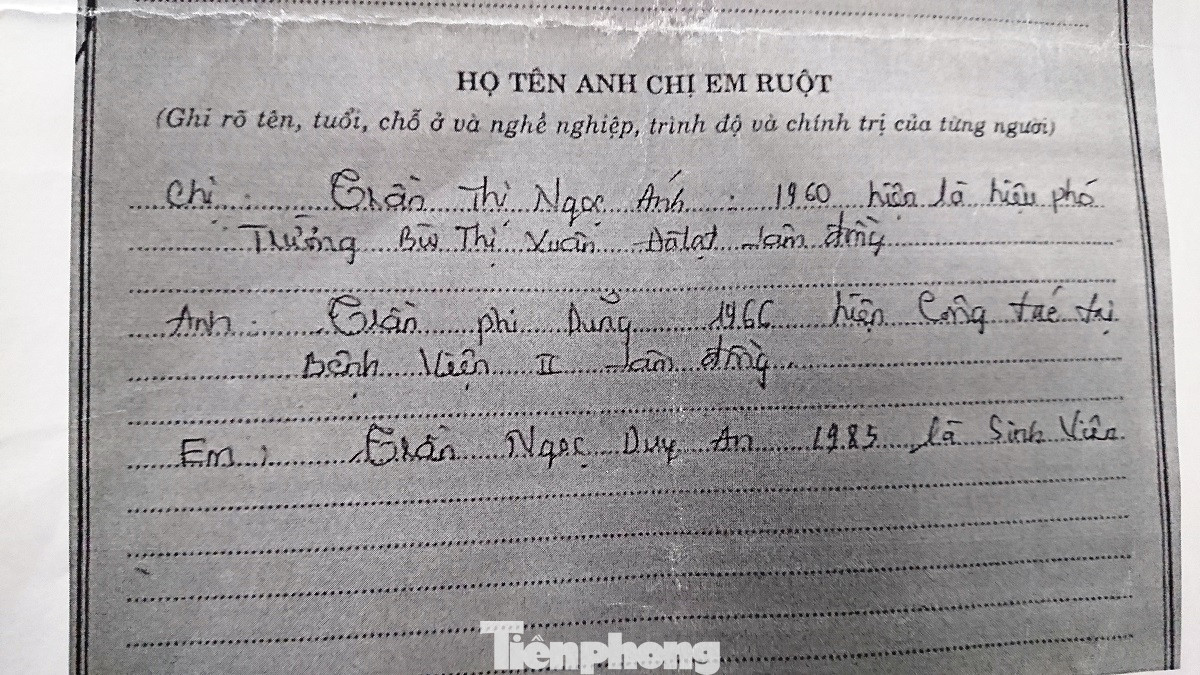 HỌ TÊN ANH CHỊ EM RUỘT
(Ghi rõ tên, tuổi, chỗ ở và nghề nghiệp, trình độ và chính trị của từng người)
Chị : Trần Thị Ngọc Ánh : 1960 hiện là hiệu phó
Trường Bùi Thị Xuân Đàlạt Lâm đồng
Anh : Trần phi Dũng 1966 hiện Công tác tại
Bệnh Viện II Lâm đồng
Em : Trần Ngọc Duy An 1985 là Sinh Viên
Tiềnphong